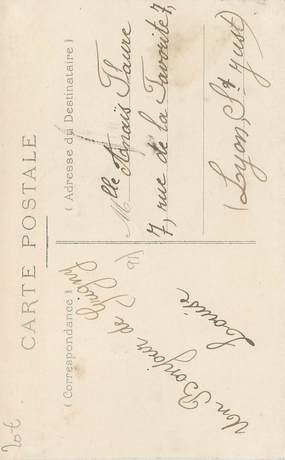 CARTE POSTALE
(Correspondance)
(Adresse du Destinataire)
Un Bonjour de Grigny
(91)
Louise
Mlle Anaïs Faure
7, rue de la Favorite 7,
(Lyon, St Just)
20€